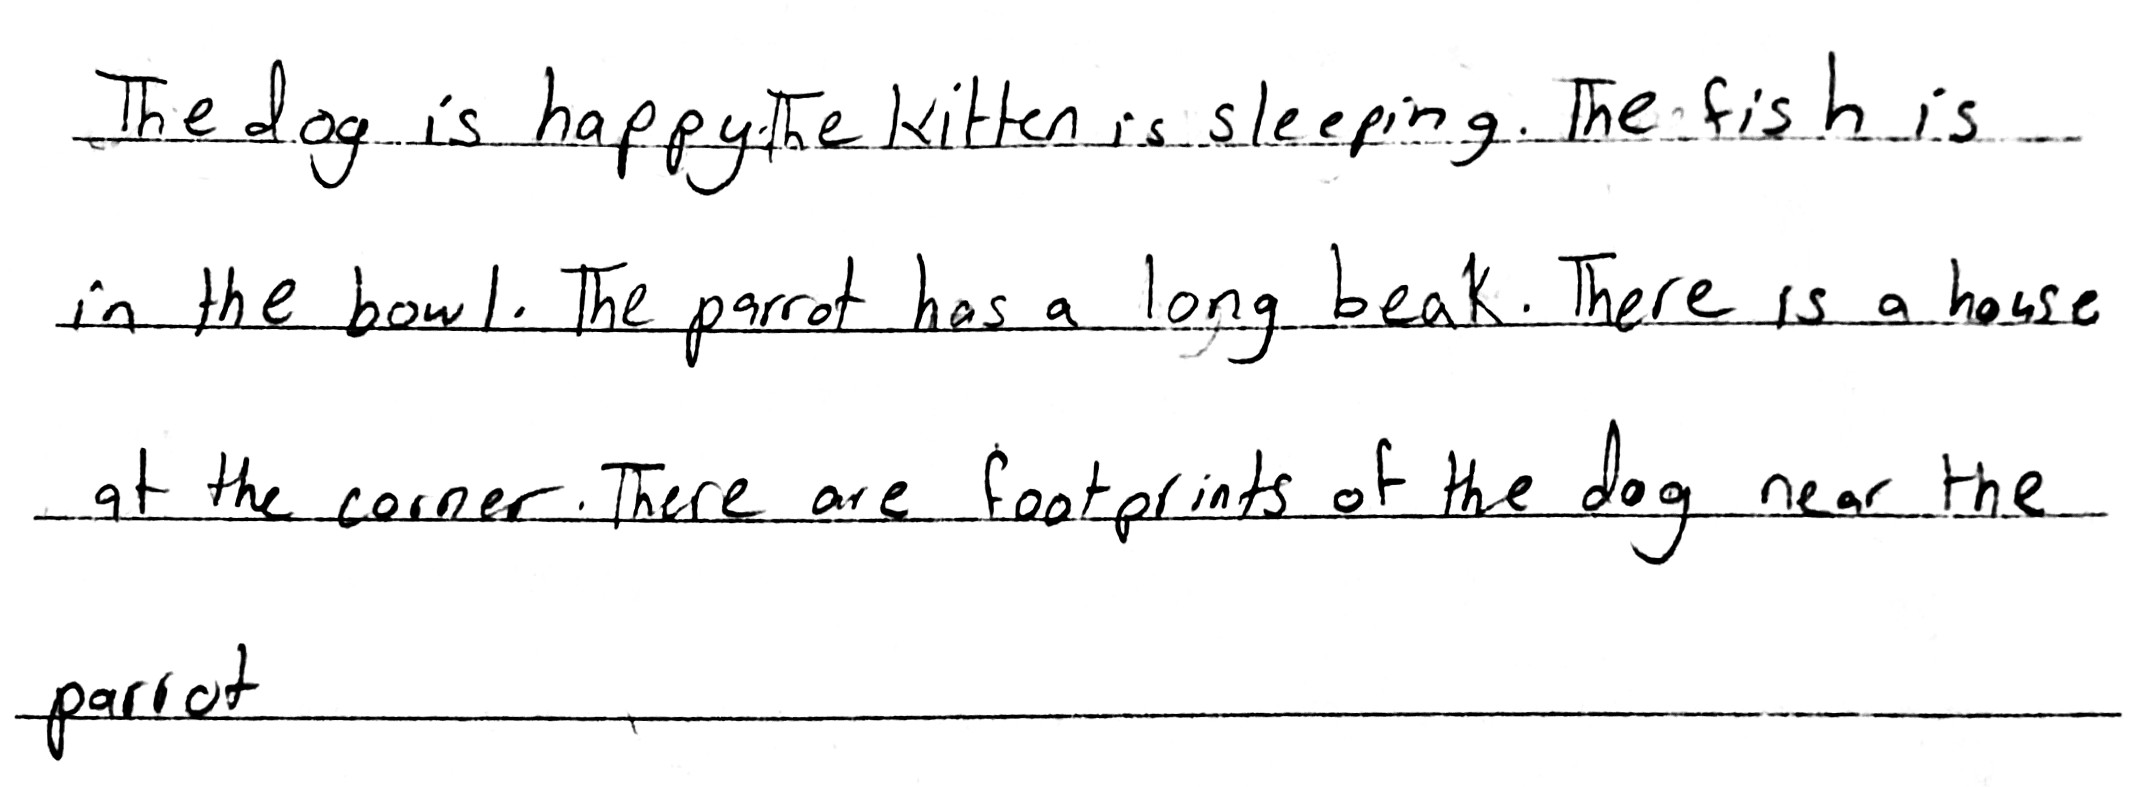 The dog is happy.The kitten is sleeping. The fish is
in the bowl. The parrot has a long beak. There is a house
at the corner. There are footprints of the dog near the
parrot